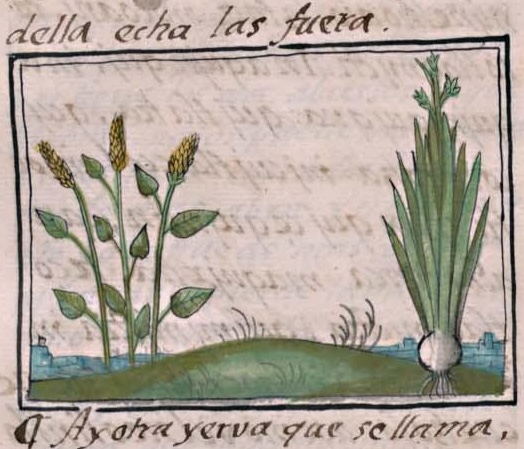 della echa las fuera.
¶ Ay otra yerva que se llama,